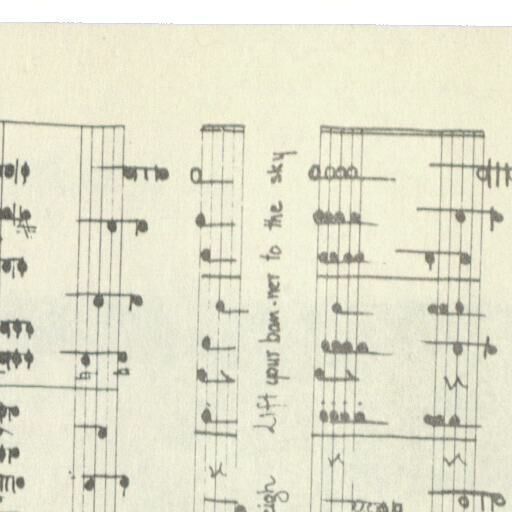 eigh Lift your ban-ner to the sky